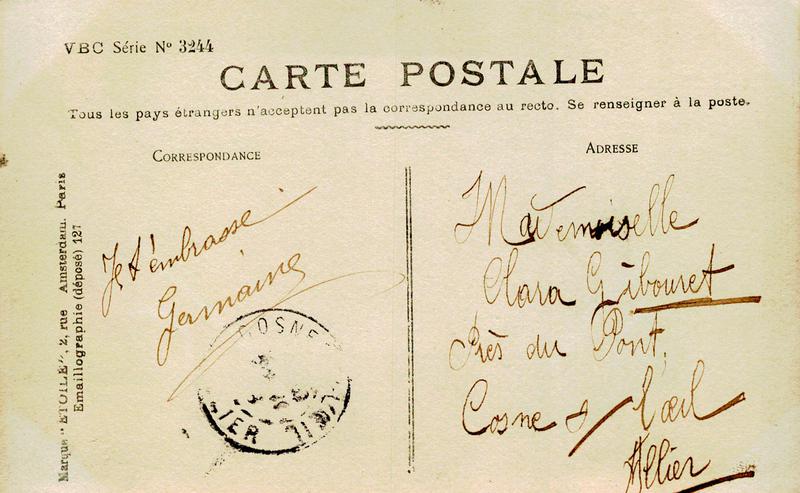 VBC Série Nº 3244
CARTE POSTALE
Tous les pays étrangers n'acceptent pas la correspondance au recto. Se renseigner à la poste.
CORRESPONDANCE
ADRESSE
Marque "ETOILE", 2, rue Amsterdam. Paris
Emaillographie (déposé) 127
Je t'embrasse
Germaine
COSNE
L'ŒIL
ALLIER
Mademoiselle
Clara Gibouret
Près du Pont,
Cosne s/ l'œil
Allier